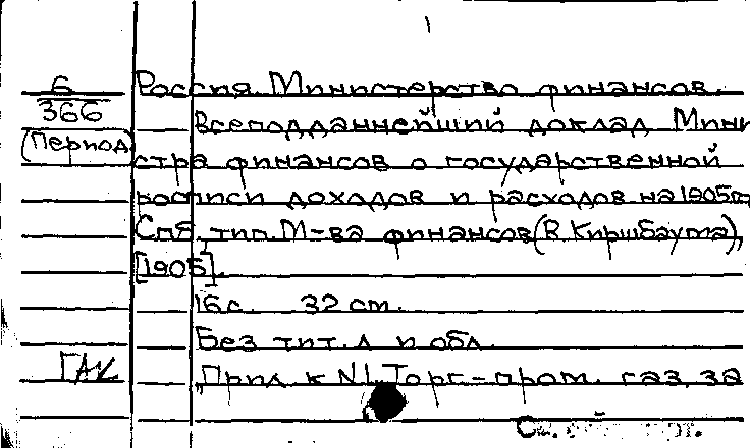 6
366
(Период)
Россия. Министерство финансов.
Всеподданнейший доклад Мини
стра финансов о государственной
росписи доходов и расходов на 1905 г.
Спб., тип. М-ва финансов (В. Киршбаума),
[1905].
16 с. 32 см.
Без тит. л. и обл.
ГАК
"Прил. к N1. Торг.-пром. газ. за
См.